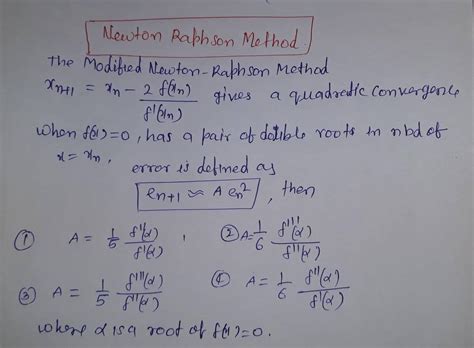 Newton Raphson Method
The Modified Newton-Raphson Method
x_{n+1} = x_n - 2 f(x_n) / f'(x_n) gives a quadratic convergence
when f(x)=0, has a pair of double roots in nbd of
x = x_n,
error is defined as
e_{n+1} ≈ A e_n^2, then
① A = 1/6 f''(α)/f'(α) , ② A = 1/6 f'''(α)/f''(α)
③ A = 1/5 f'''(α)/f''(α) ④ A = 1/6 f''(α)/f'(α)
where α is a root of f(x)=0.